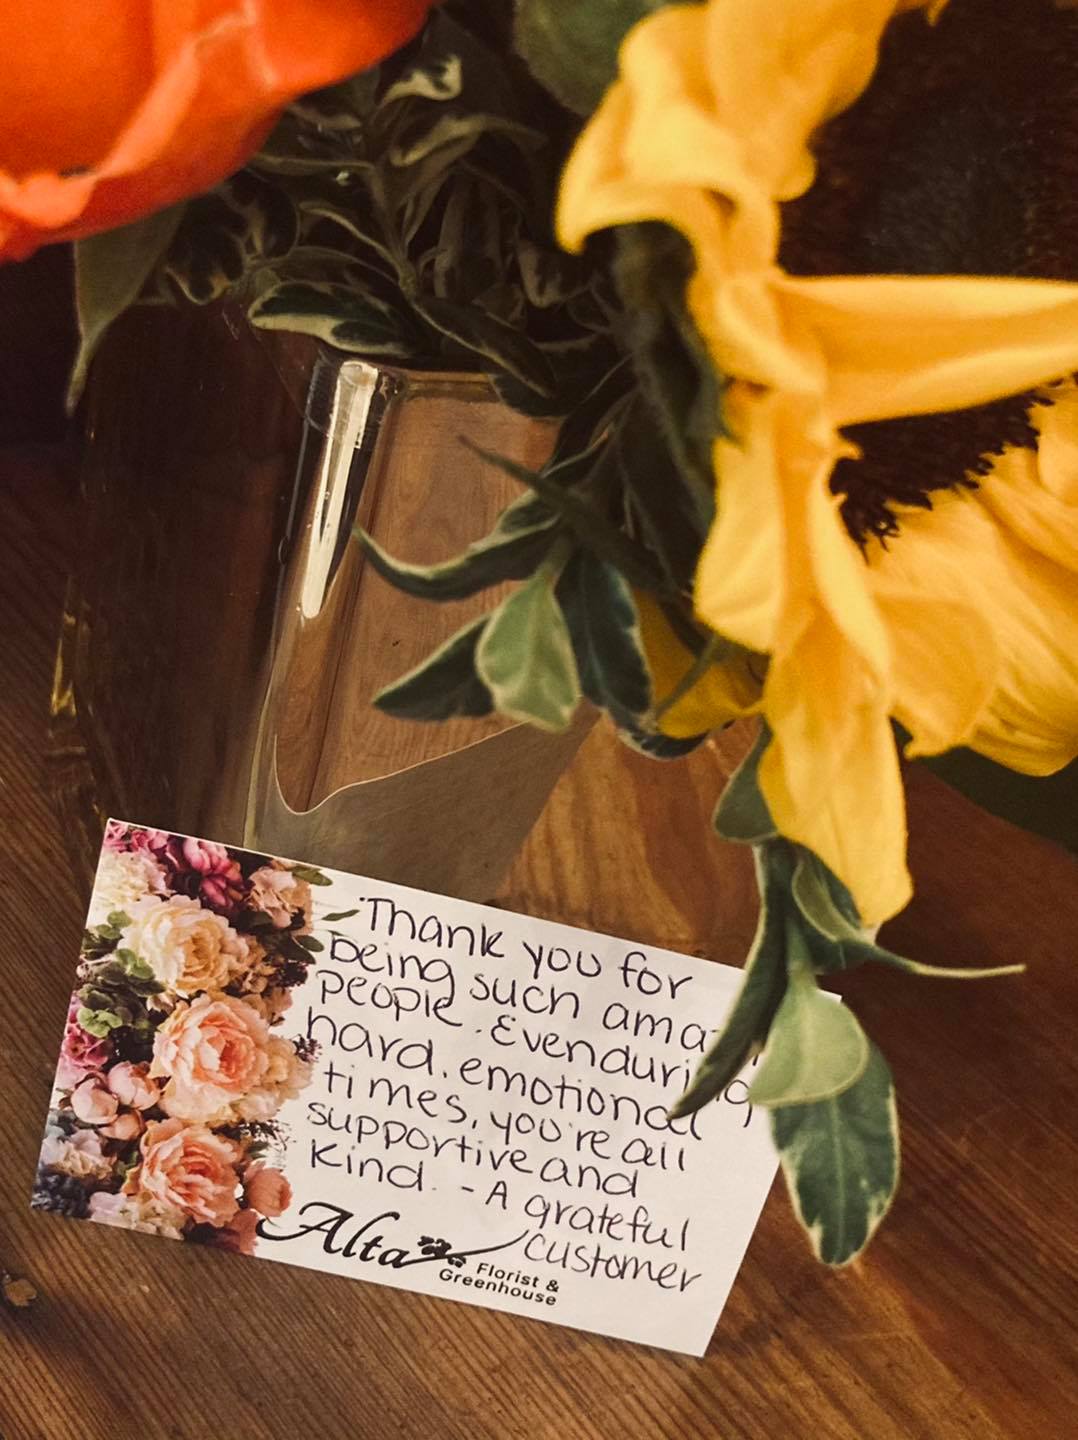 Thank you for
being such
people. Even during
hard, emotional
times, you're all
supportive and
kind. - A grateful
customer
Alta
Florist &
Greenhouse